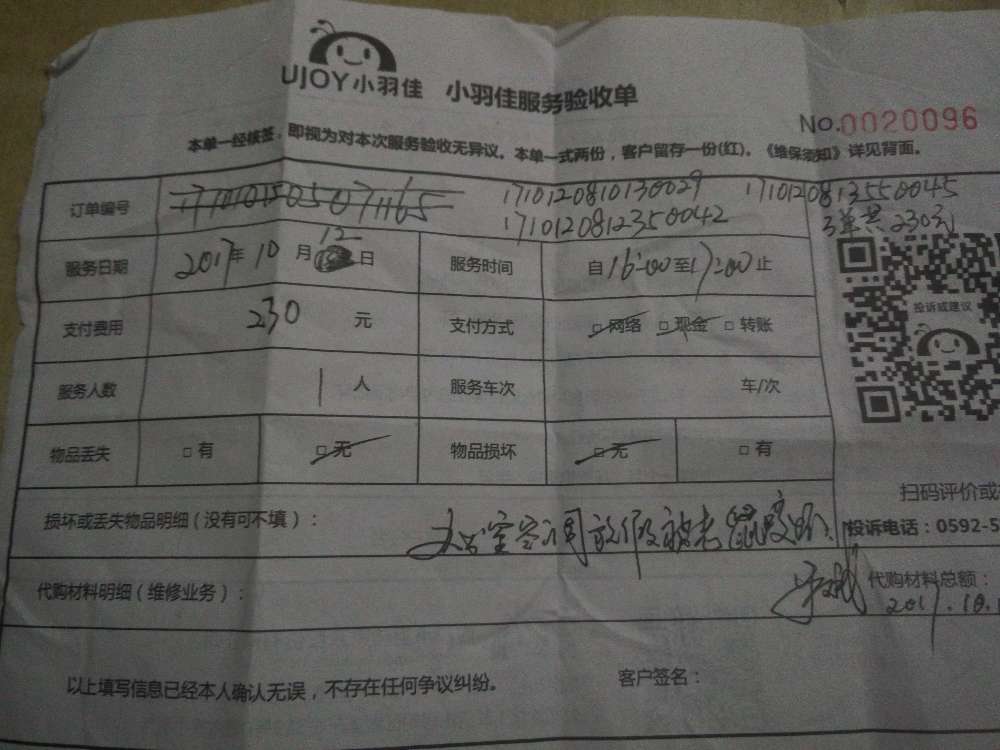 UJOY小羽佳 小羽佳服务验收单
No.0020096
本单一经核签，即视为对本次服务验收无异议。本单一式两份，客户留存一份(红)。《维保须知》详见背面。
订单编号 1710120810130029 1710120813550045
1710120812350042 3单共230元
服务日期 2017年10月12日 服务时间 自16:00至17:00止
投诉或建议
支付费用 230元 支付方式 □网络 □现金 □转账
服务人数 1人 服务车次 车/次
物品丢失 □有 □无 物品损坏 □无 □有
扫码评价或
损坏或丢失物品明细（没有可不填）：
投诉电话：0592-5
办公室空调放假被老鼠咬
代购材料明细（维修业务）：
代购材料总额：
2017.10.1
以上填写信息已经本人确认无误，不存在任何争议纠纷。 客户签名：